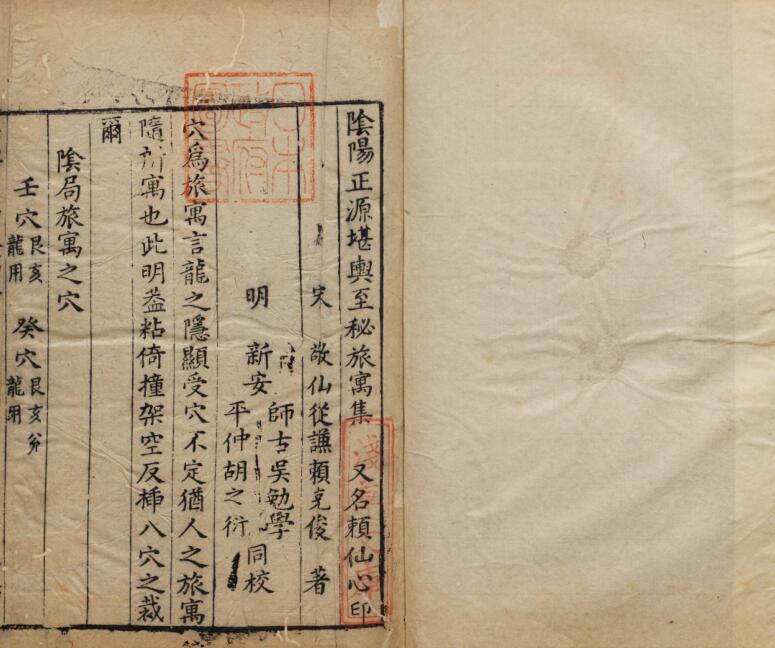 陰陽正源堪輿至秘旅寓集 又名頼仙心印
宋 敬仙從謙頼克俊 著
明 新安 師古吳勉學 平仲胡之衍 同校
穴爲旅寓言龍之隱顯受穴不定猶人之旅寓
隨所寓也此明葢粘倚撞架空反揷八穴之裁
爾
陰局旅寓之穴
壬穴艮亥龍用 癸穴艮亥 龍用
日本
政府
圖書